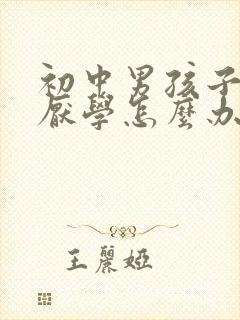 初中男孩子
厭學怎麼办
王麗婭